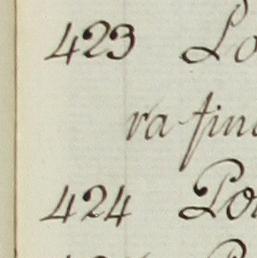 423 Lo
ra fin
424 Po